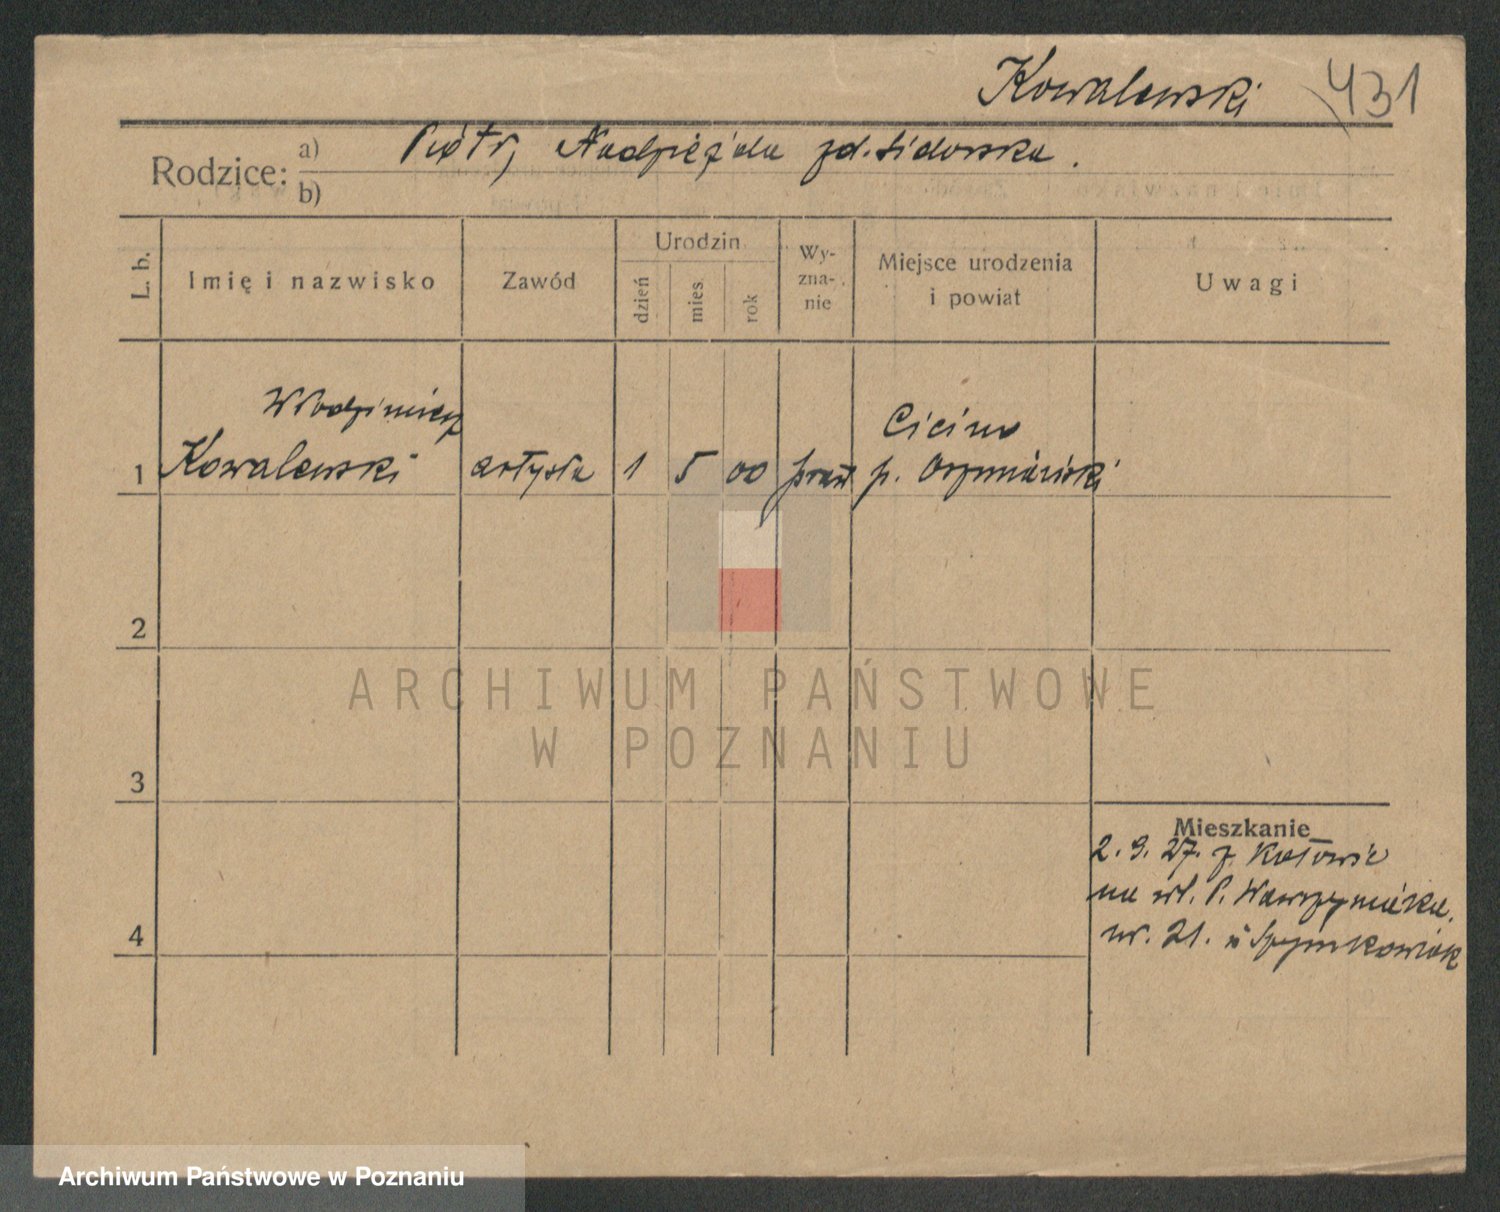 Kowalewski 431
Rodzice: a) Piotr, Nadzieżda zd. Sidorska.
b)
L. b. Imię i nazwisko Zawód Urodzin dzień mies. rok Wy-zna-nie Miejsce urodzenia i powiat Uwagi
Włodzimierz
Kowalewski
1 artysta 1 5 00 praw
p. Oszmiański
2
ARCHIWUM PAŃSTWOWE
W POZNANIU
3
Mieszkanie
2. 9. 27. z Katowic
na wł. P. Wawrzyniaka.
4 nr. 21. Szymkowiak
Archiwum Państwowe w Poznaniu